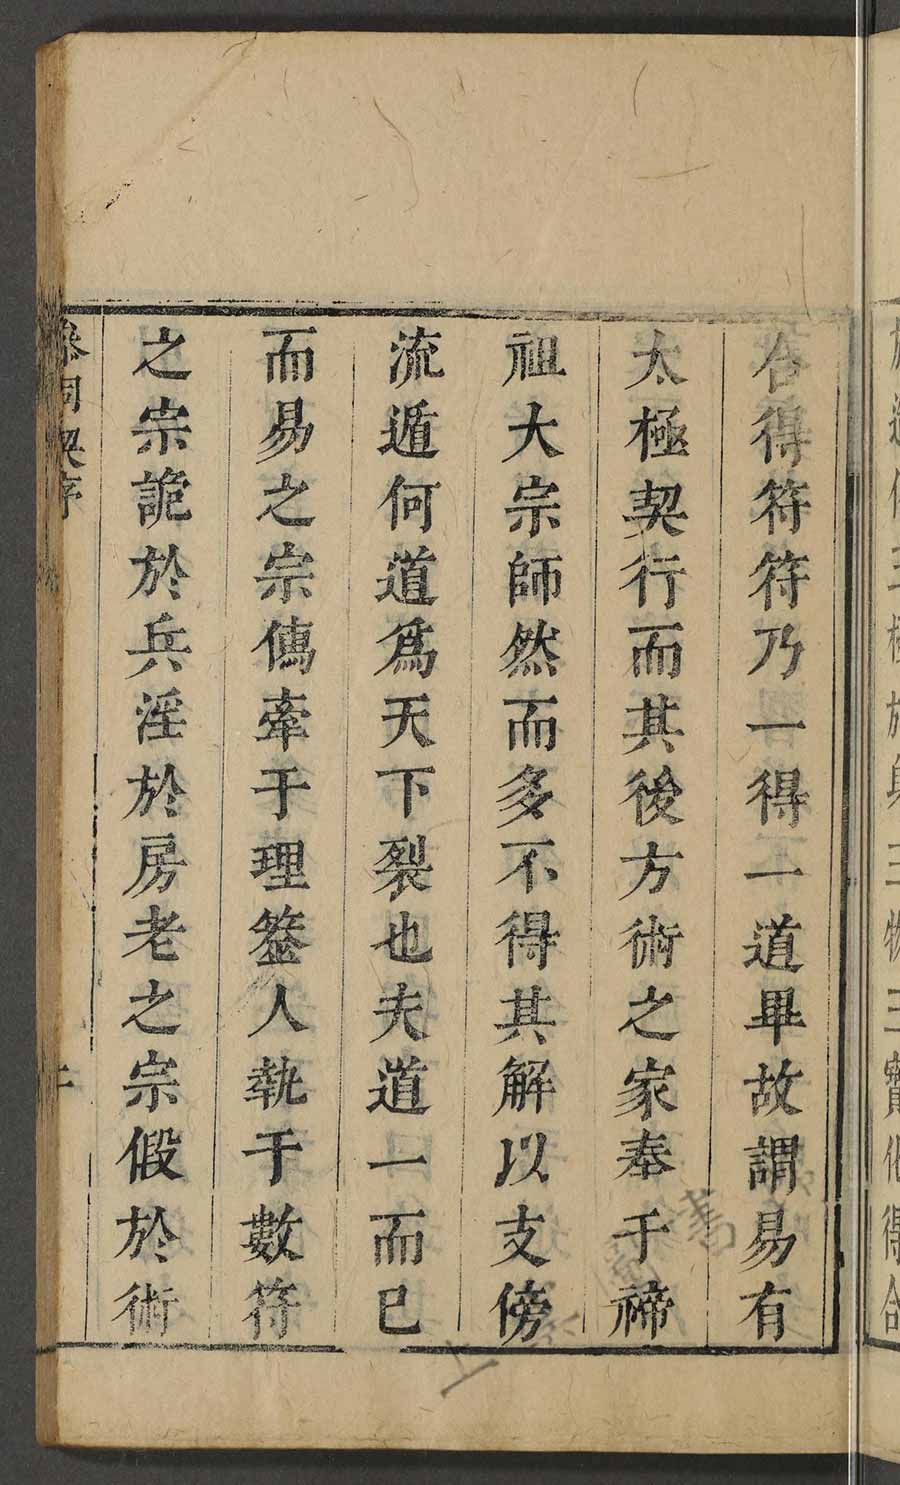 合得符符乃一得一道畢故謂易有
太極契行而其後方術之家奉于禘
祖大宗師然而多不得其解以支傍
流遁何道爲天下裂也夫道一而已
而易之宗傳牽于理簽人執于數符
之宗詭於兵淫於房老之宗假於術
參同契序